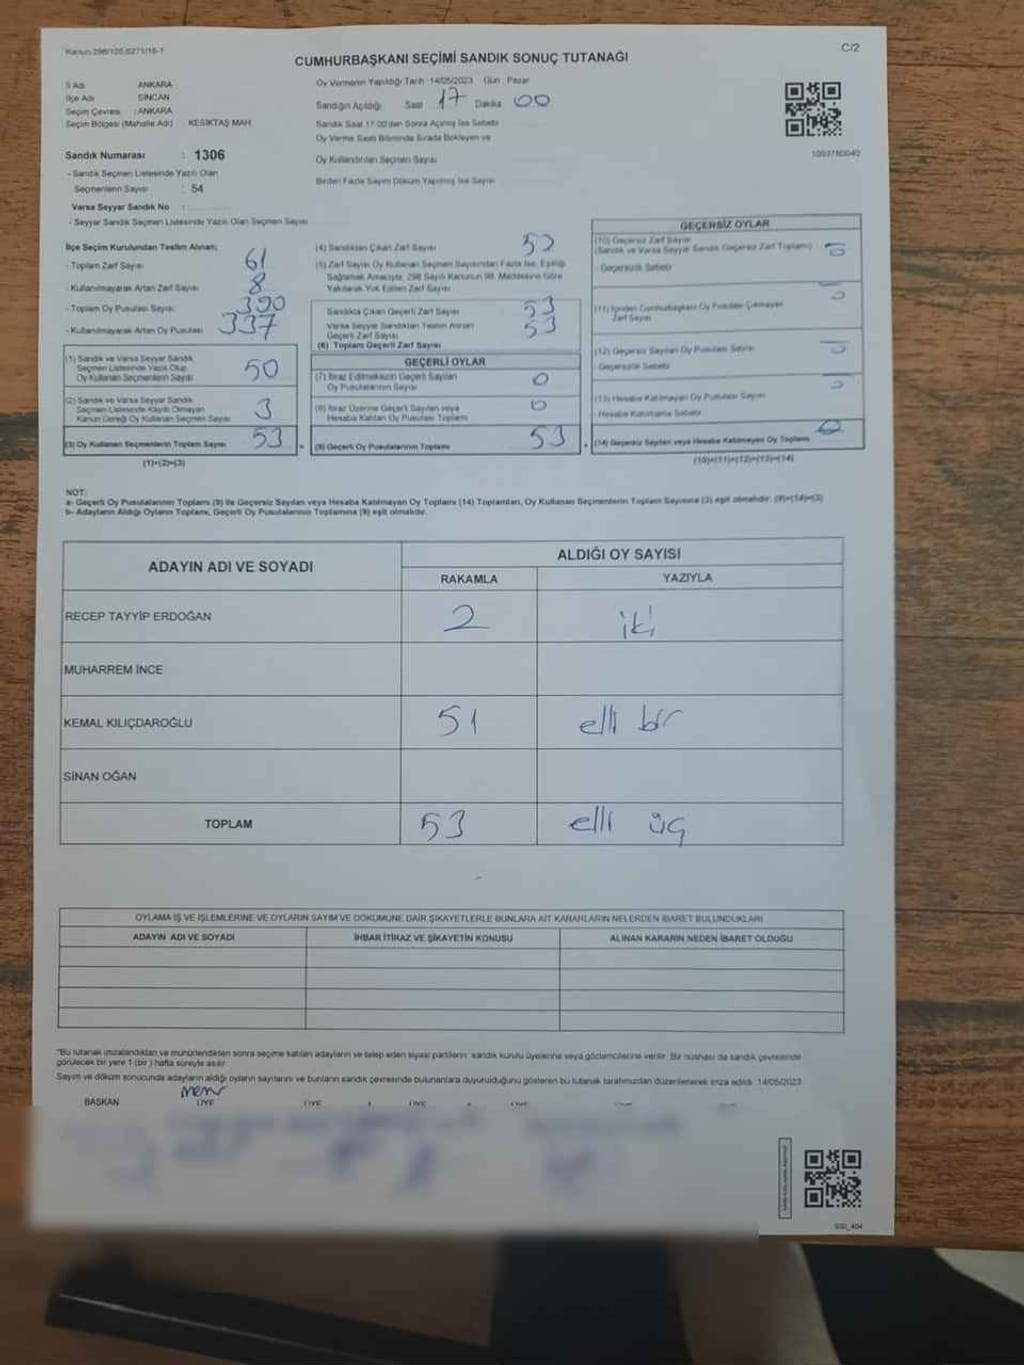 Kanun 298/105-5271/16-1
C/2
CUMHURBAŞKANI SEÇİMİ SANDIK SONUÇ TUTANAĞI
İl Adı ANKARA
İlçe Adı SİNCAN
Seçim Çevresi : ANKARA
Seçim Bölgesi (Mahalle Adı) KESİKTAŞ MAH.
Sandık Numarası : 1306
- Sandık Seçmen Listesinde Yazılı Olan
Seçmenlerin Sayısı : 54
Varsa Seyyar Sandık No :
- Seyyar Sandık Seçmen Listesinde Yazılı Olan Seçmen Sayısı
Oy Vermenin Yapıldığı Tarih 14/05/2023 Gün : Pazar
Sandığın Açıldığı Saat 17 Dakika 00
Sandık Saat 17:00'dan Sonra Açılmış İse Sebebi
Oy Verme Saati Bitiminde Sırada Bekleyen ve
Oy Kullandırılan Seçmen Sayısı
Birden Fazla Sayım Döküm Yapılmış İse Sayısı
1093780040
İlçe Seçim Kurulundan Teslim Alınan;
- Toplam Zarf Sayısı 61
- Kullanılmayarak Artan Zarf Sayısı 8
- Toplam Oy Pusulası Sayısı 390
- Kullanılmayarak Artan Oy Pusulası 337
(1) Sandık ve Varsa Seyyar Sandık
Seçmen Listesinde Yazılı Olup
Oy Kullanan Seçmenlerin Sayısı 50
(2) Sandık ve Varsa Seyyar Sandık
Seçmen Listesinde Kayıtlı Olmayan
Kanun Gereği Oy Kullanan Seçmen Sayısı 3
(3) Oy Kullanan Seçmenlerin Toplam Sayısı 53
(1)+(2)=(3)
(4) Sandıktan Çıkan Zarf Sayısı 53
(5) Zarf Sayısı Oy Kullanan Seçmen Sayısından Fazla İse, Eşitliği
Sağlamak Amacıyla, 298 Sayılı Kanunun 98. Maddesine Göre
Yakılarak Yok Edilen Zarf Sayısı
Sandıkta Çıkan Geçerli Zarf Sayısı 53
Varsa Seyyar Sandıktan Teslim Alınan
Geçerli Zarf Sayısı 53
(6) Toplam Geçerli Zarf Sayısı
GEÇERLİ OYLAR
(7) İtiraz Edilmeksizin Geçerli Sayılan
Oy Pusulalarının Sayısı 0
(8) İtiraz Üzerine Geçerli Sayılan veya
Hesaba Katılan Oy Pusulası Toplamı 0
(9) Geçerli Oy Pusulalarının Toplamı 53
GEÇERSİZ OYLAR
(10) Geçersiz Zarf Sayısı
(Sandık ve Varsa Seyyar Sandık Geçersiz Zarf Toplamı)
Geçersizlik Sebebi
(11) İçinden Cumhurbaşkanı Oy Pusulası Çıkmayan
Zarf Sayısı
(12) Geçersiz Sayılan Oy Pusulası Sayısı
Geçersizlik Sebebi
(13) Hesaba Katılmayan Oy Pusulası Sayısı
Hesaba Katılmama Sebebi
(14) Geçersiz Sayılan veya Hesaba Katılmayan Oy Toplamı 0
(10)+(11)+(12)+(13)=(14)
NOT:
a- Geçerli Oy Pusulalarının Toplamı (9) ile Geçersiz Sayılan veya Hesaba Katılmayan Oy Toplamı (14) Toplamları, Oy Kullanan Seçmenlerin Toplam Sayısına (3) eşit olmalıdır. (9)+(14)=(3)
b- Adayların Aldığı Oyların Toplamı, Geçerli Oy Pusulalarının Toplamına (9) eşit olmalıdır.
ADAYIN ADI VE SOYADI
ALDIĞI OY SAYISI
RAKAMLA YAZIYLA
RECEP TAYYİP ERDOĞAN 2 iki
MUHARREM İNCE
KEMAL KILIÇDAROĞLU 51 elli bir
SİNAN OĞAN
TOPLAM 53 elli üç
OYLAMA İŞ VE İŞLEMLERİNE VE OYLARIN SAYIM VE DÖKÜMÜNE DAİR ŞİKAYETLERLE BUNLARA AİT KARARLARIN NELERDEN İBARET BULUNDUKLARI
ADAYIN ADI VE SOYADI İHBAR İTİRAZ VE ŞİKAYETİN KONUSU ALINAN KARARIN NEDEN İBARET OLDUĞU
"Bu tutanak imzalandıktan ve mühürlendikten sonra seçime katılan adayların ve talep eden siyasi partilerin sandık kurulu üyelerine veya gözlemcilerine verilir. Bir nüshası da sandık çevresinde
görülecek bir yere 1 (bir ) hafta süreyle asılır.
Sayım ve döküm sonucunda adayların aldığı oyların sayılarını ve bunların sandık çevresinde bulunanlara duyurulduğunu gösteren bu tutanak tarafımızdan düzenlenerek imza edildi. 14/05/2023
BAŞKAN ÜYE ÜYE ÜYE